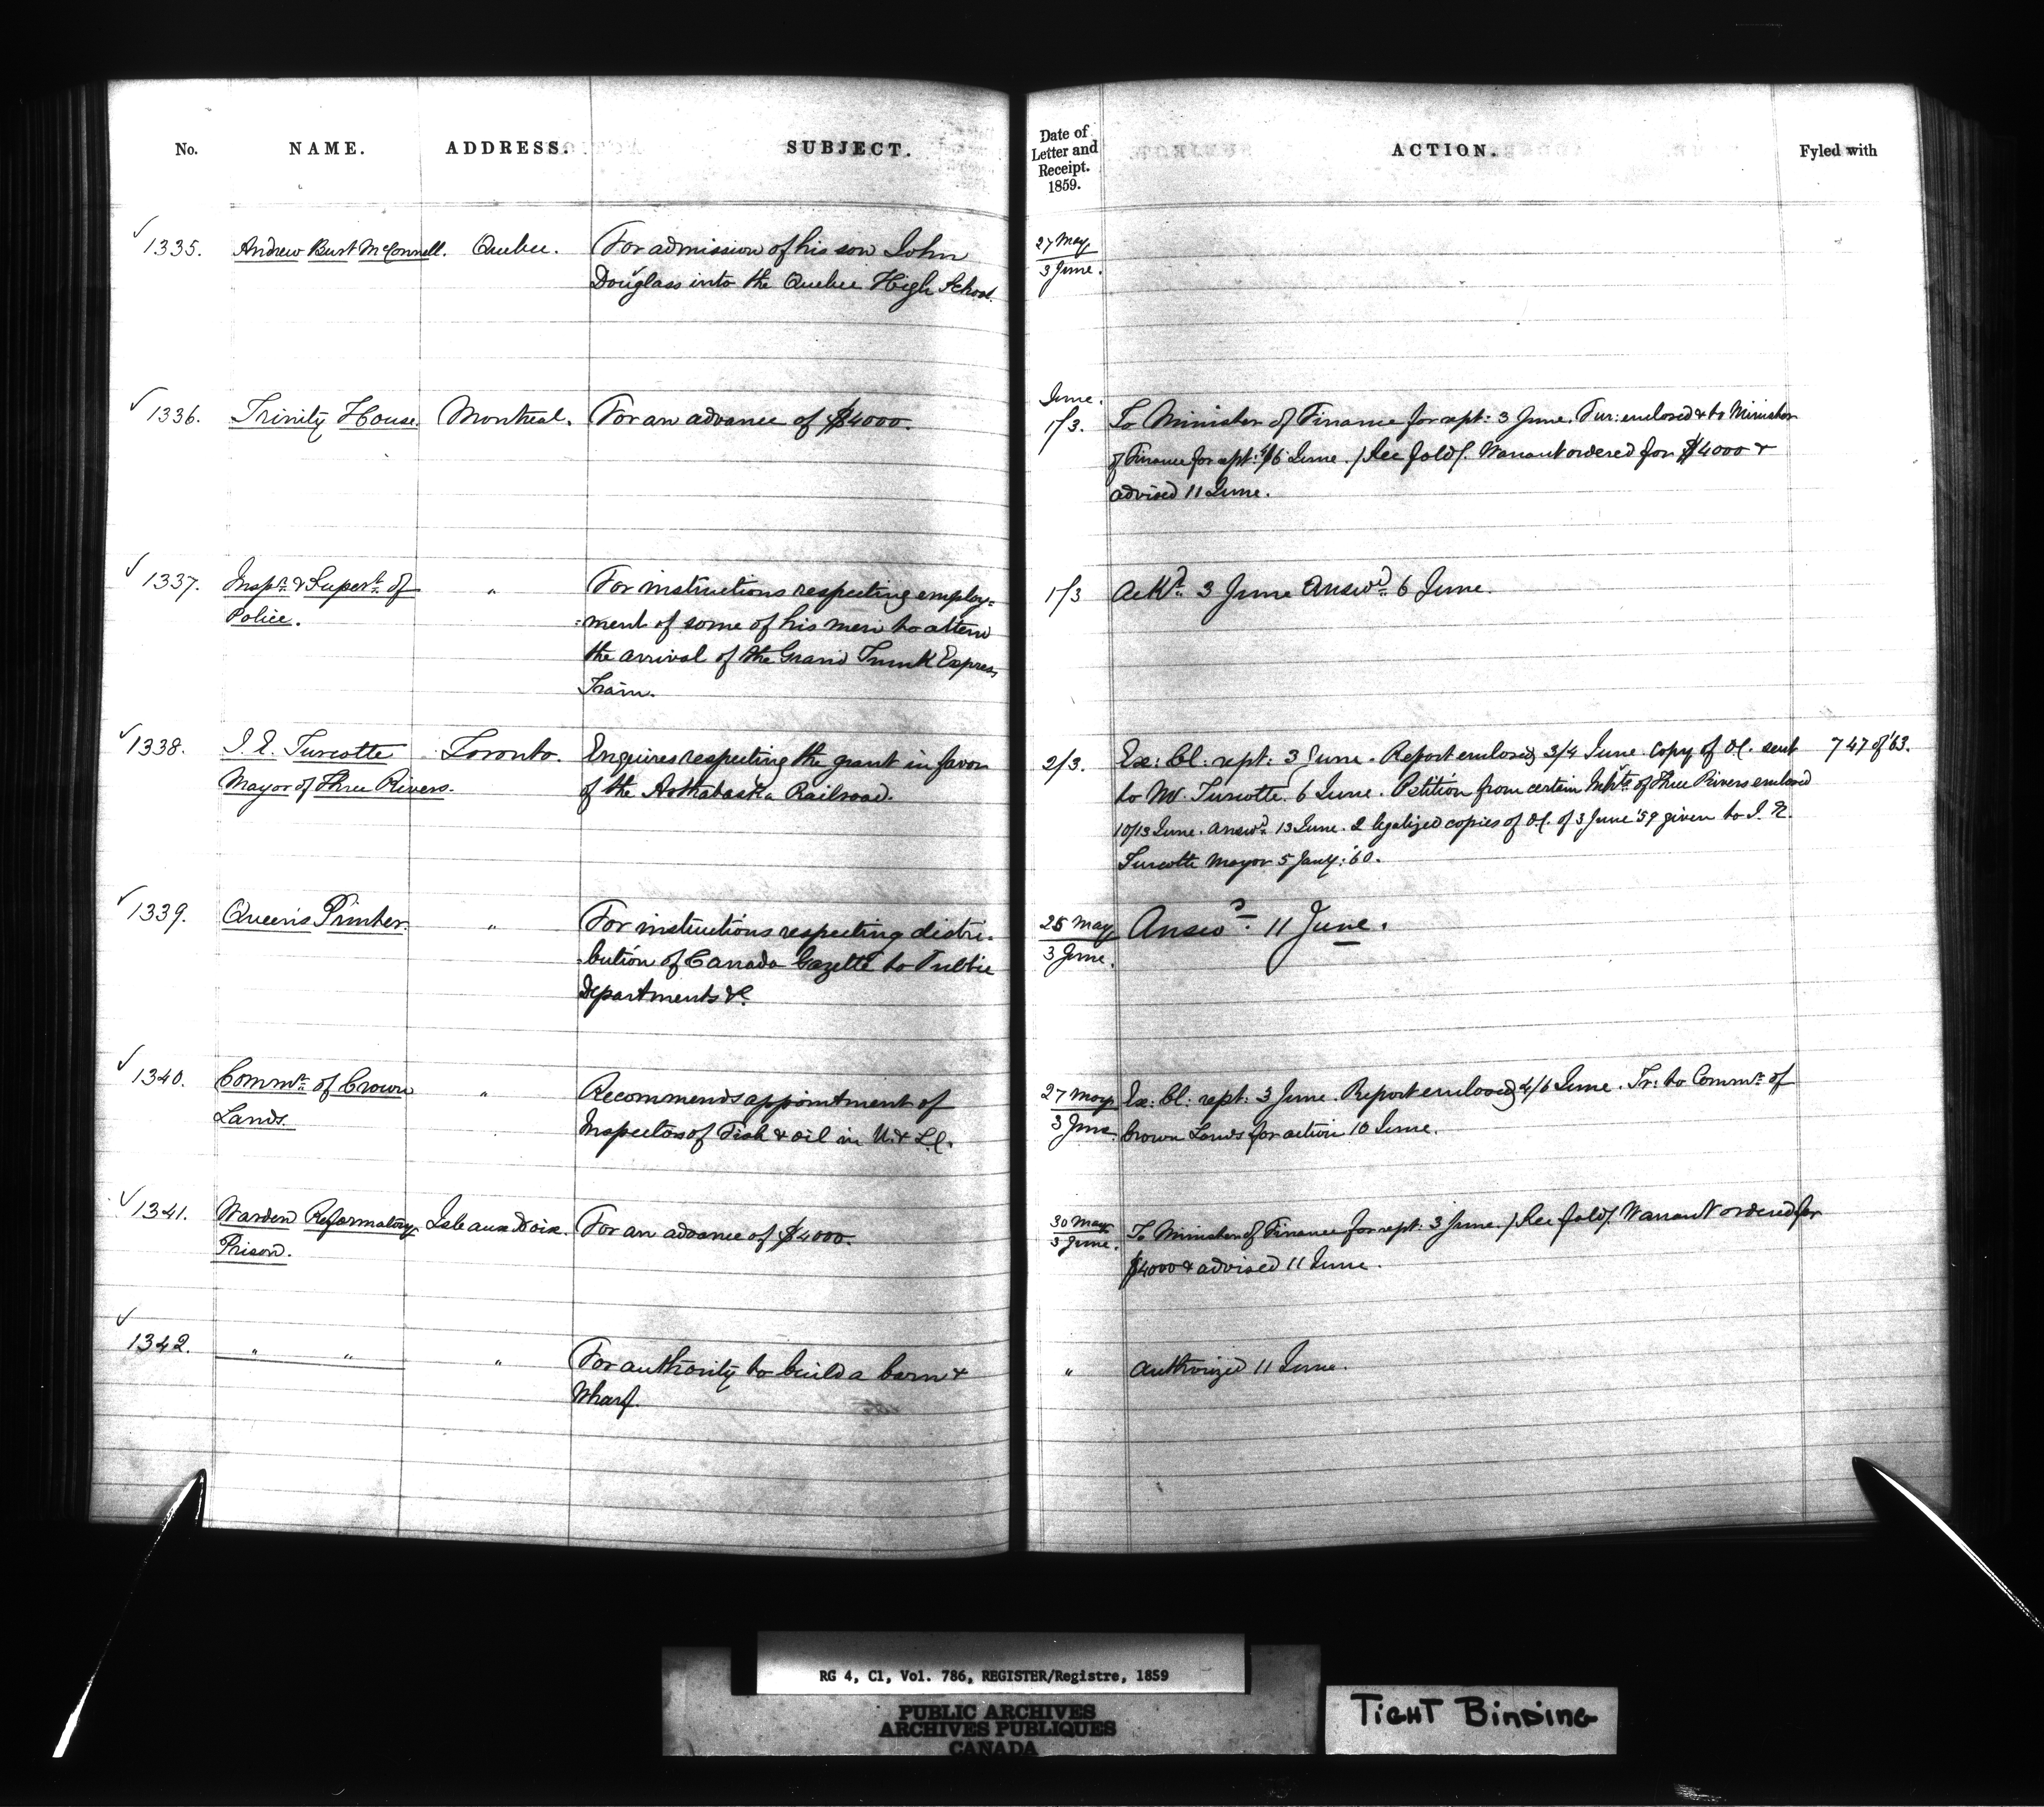 No. NAME. ADDRESS. SUBJECT.
✓ 1335. Andrew Burt McConnell. Quebec. For admission of his son John
Douglass into the Quebec High School.
✓ 1336. Trinity House. Montreal. For an advance of $4000.
✓ 1337. Inspr. & Supert. of " For instructions respecting employ=
Police. =ment of some of his men to attend
the arrival of the Grand Trunk Express
Train.
✓ 1338. J. E. Turcotte Toronto. Enquires respecting the grant in favor
Mayor of Three Rivers. of the Arthabaska Railroad.
✓ 1339. Queen's Printer. " For instructions respecting distri-
-bution of Canada Gazette to Public
Departments &c.
✓ 1340. Commr. of Crown " Recommends appointment of
Lands. Inspectors of Fish & oil in U. & L.C.
✓ 1341. Warden Reformatory Isle aux Noix. For an advance of $4000.
Prison.
✓ 1342. " " " For authority to build a barn &
Wharf.
Date of
Letter and
Receipt.
1859.
ACTION. Fyled with
27 May
3 June.
June.
1/3. To Minister of Finance for rept: 3 June. Fur: enclosed & to Minister
of Finance for rept: 4/6 June. / See fold /. Warrant ordered for $4000 &
advised 11 June.
1/3 Ackd. 3 June Answd. 6 June.
2/3. Ex: Cl: rept: 3 June. Report enclosed 3/4 June. Copy of O.C. sent 747 of '63.
to Mr. Turcotte. 6 June. Petition from certain Inhts. of Three Rivers enclosed
10/13 June. Answd. 13 June. 2 legalized copies of O.C. of 3 June '59 given to J. E.
Turcotte Mayor 5 Jany: '60.
25 May Answd. 11 June.
3 June.
27 May Ex: Cl: rept: 3 June. Report enclosed 4/6 June. Tr: to Commr. of
3 June. Crown Lands for action 10 June.
30 May
3 June. To Minister of Finance for rept: 3 June. / See fold /. Warrant ordered for
$4000 & advised 11 June.
" Authorized 11 June.
RG 4, C1, Vol. 786, REGISTER/Registre, 1859
PUBLIC ARCHIVES
ARCHIVES PUBLIQUES
CANADA
TIGHT BINDING